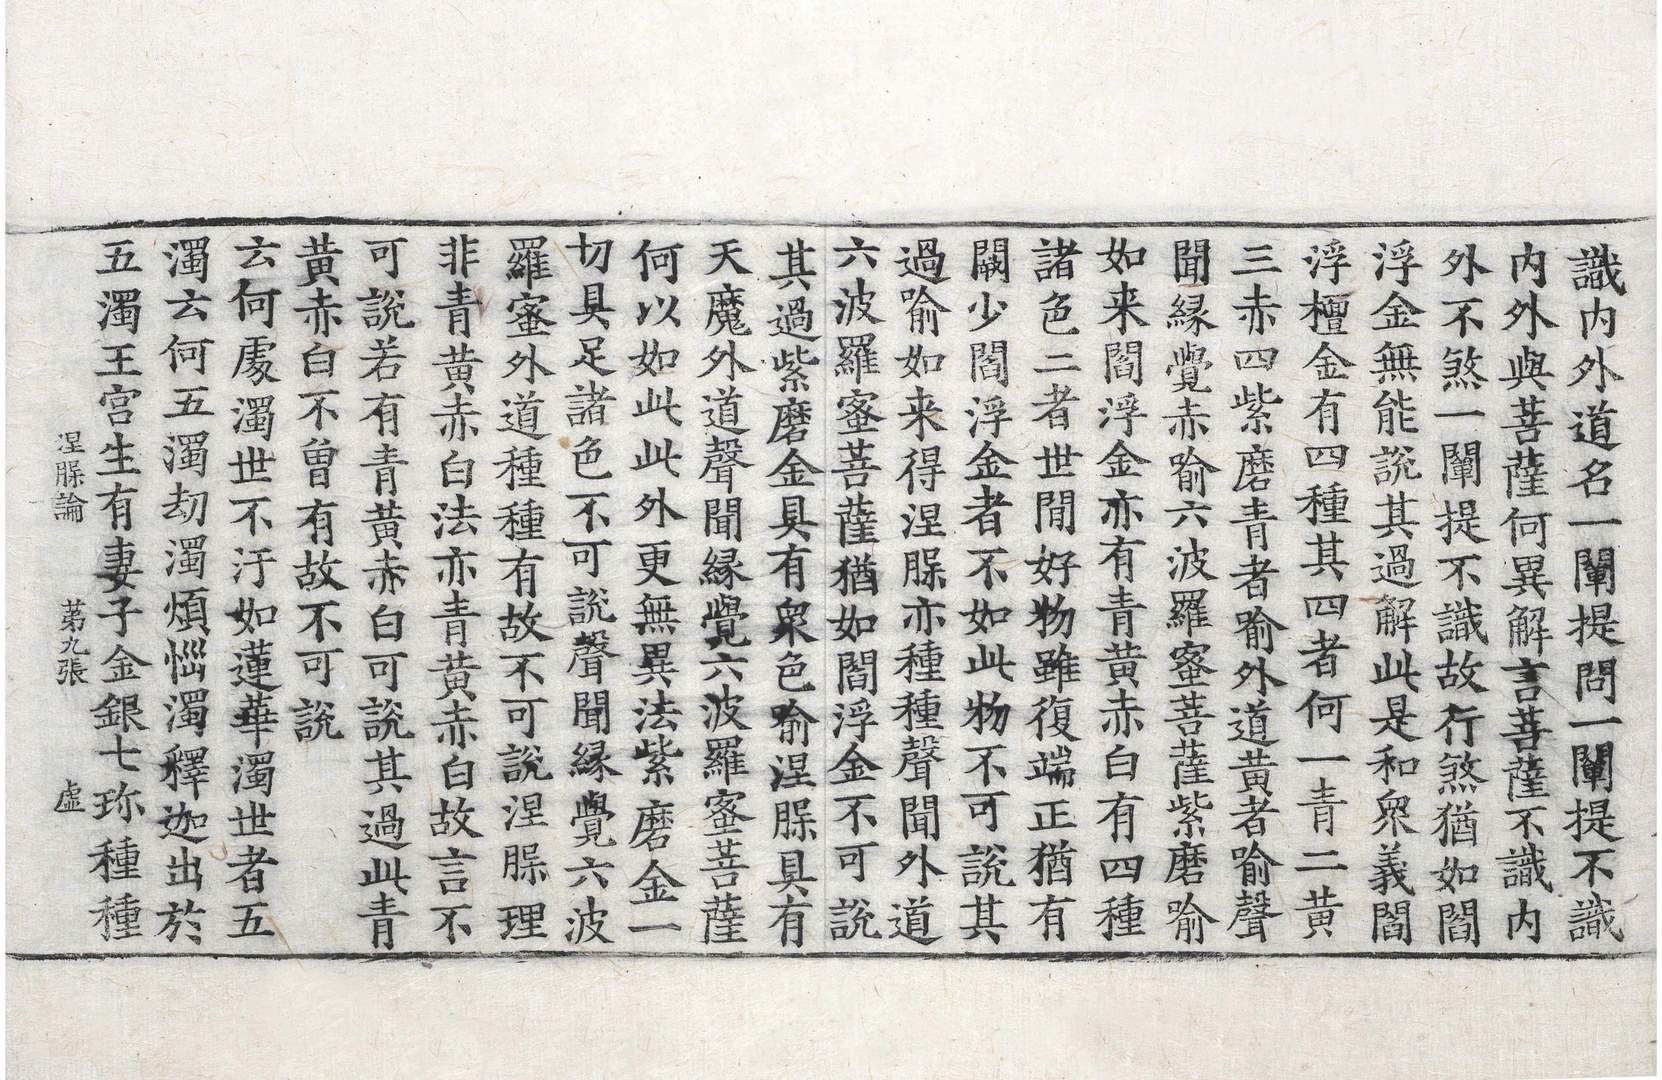 識內外道名一闡提問一闡提不識
內外與菩薩何異解言菩薩不識內
外不煞一闡提不識故行煞猶如閻
浮金無能說其過解此是和衆義閻
浮檀金有四種其四者何一青二黄
三赤四紫磨青者喻外道黄者喻聲
聞縁覺赤喻六波羅蜜菩薩紫磨喻
如来閻浮金亦有青黄赤白有四種
諸色二者世間好物雖復端正猶有
闕少閻浮金者不如此物不可說其
過喻如来得涅槃亦種種聲聞外道
六波羅蜜菩薩猶如閻浮金不可說
其過紫磨金具有衆色喻涅槃具有
天魔外道聲聞縁覺六波羅蜜菩薩
何以如此此外更無異法紫磨金一
切具足諸色不可說聲聞縁覺六波
羅蜜外道種種有故不可說涅槃理
非青黄赤白法亦青黄赤白故言不
可說若有青黄赤白可說其過此青
黄赤白不曾有故不可說
云何處濁世不汙如蓮華濁世者五
濁云何五濁劫濁煩惱濁釋迦出於
五濁王宫生有妻子金銀七珎種種
涅槃論 第九張 虛